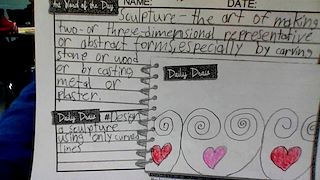 Art Word of the Day
NAME:
DATE:
sculpture - the art of making
two- or three-dimensional representative
or abstract forms, especially by carving
stone or wood
or by casting
metal or
plaster
Daily Draw
Daily Draw
#Design
a sculpture
using only curved
lines